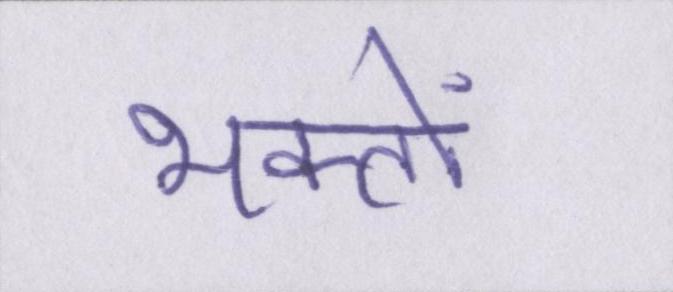 भक्तों